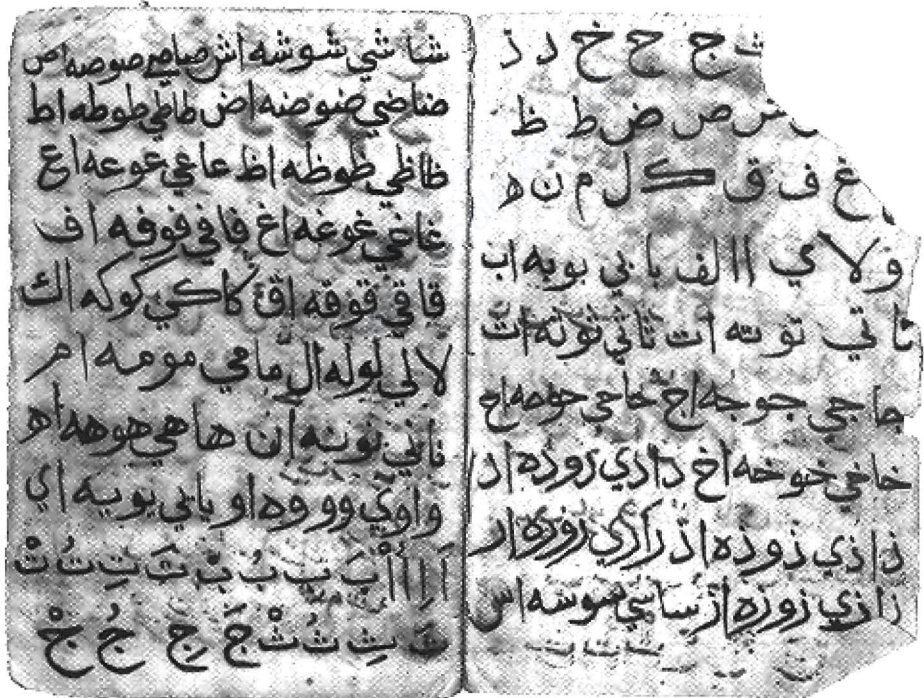 ث ج ح خ د ذ
ش ص ض ط ظ
غ ف ق ك ل م ن ه
و لا ي اا لف با بي بو به اب
تا تي تو ته ات ثا ثي ثو ثه اث
جا جي جو جه اج حا حي حو حه اح
خا خي خو خه اخ دا دي دو ده اد
ذا ذي ذو ذه اذ را ري رو ره ار
زا زي زو زه از سا سي سو سه اس
شا شي شو شه اش صا صي صو صه اص
ضا ضي ضو ضه اض طا طي طو طه اط
ظا ظي ظو ظه اظ عا عي عو عه اع
غا غي غو غه اغ فا في فو فه اف
قا قي قو قه اق كا كي كو كه اك
لا لي لو له ال ما مي مو مه ام
نا ني نو نه ان ها هي هو هه اه
وا وي وو وه او يا يي يو يه اي
اَ اِ اُ اْ بَ بِ بُ بْ تَ تِ تُ تْ
ثَ ثِ ثُ ثْ جَ جِ جُ جْ